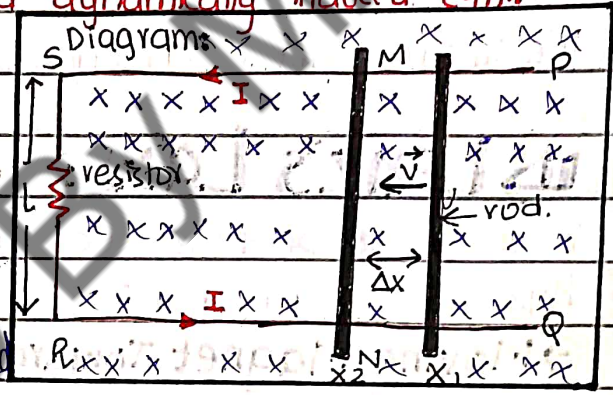 a dynamically induced emf.
Diagram:
S M P
I
resistor.
V
L rod.
Δx
I
Q
R N
x2 x1
By M